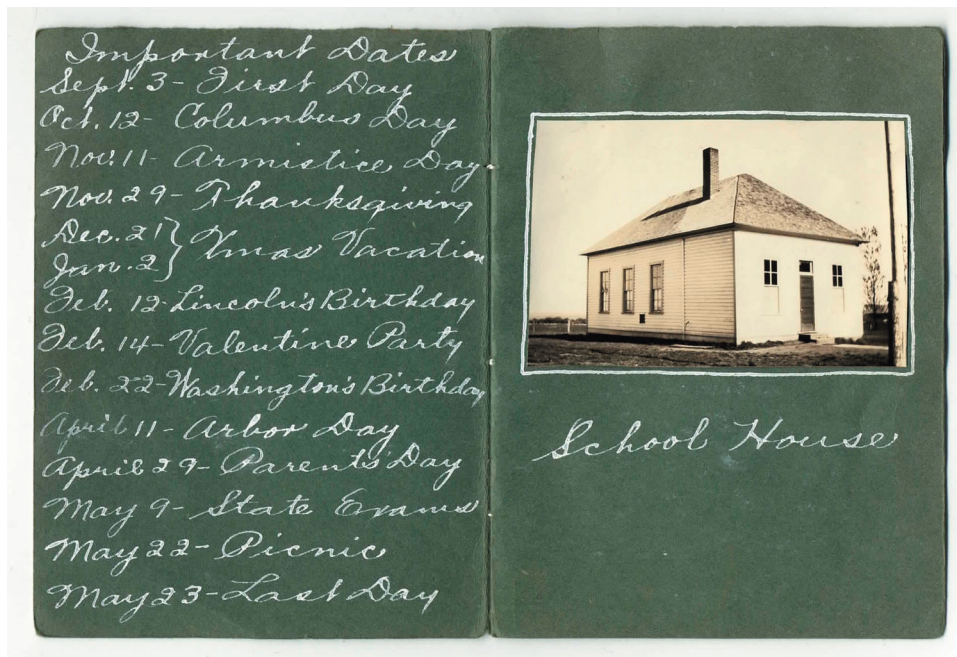 Important Dates
Sept. 3- First Day
Oct. 12- Columbus Day
Nov. 11- Armistice Day
Nov. 29- Thanksgiving
Dec. 21 } Xmas Vacation
Jan. 2 }
Feb. 12-Lincoln's Birthday
Feb. 14- Valentine Party
Feb. 22-Washington's Birthday
April 11- Arbor Day
April 29- Parents' Day
May 9- State Exams
May 22- Picnic
May 23-Last Day
School House